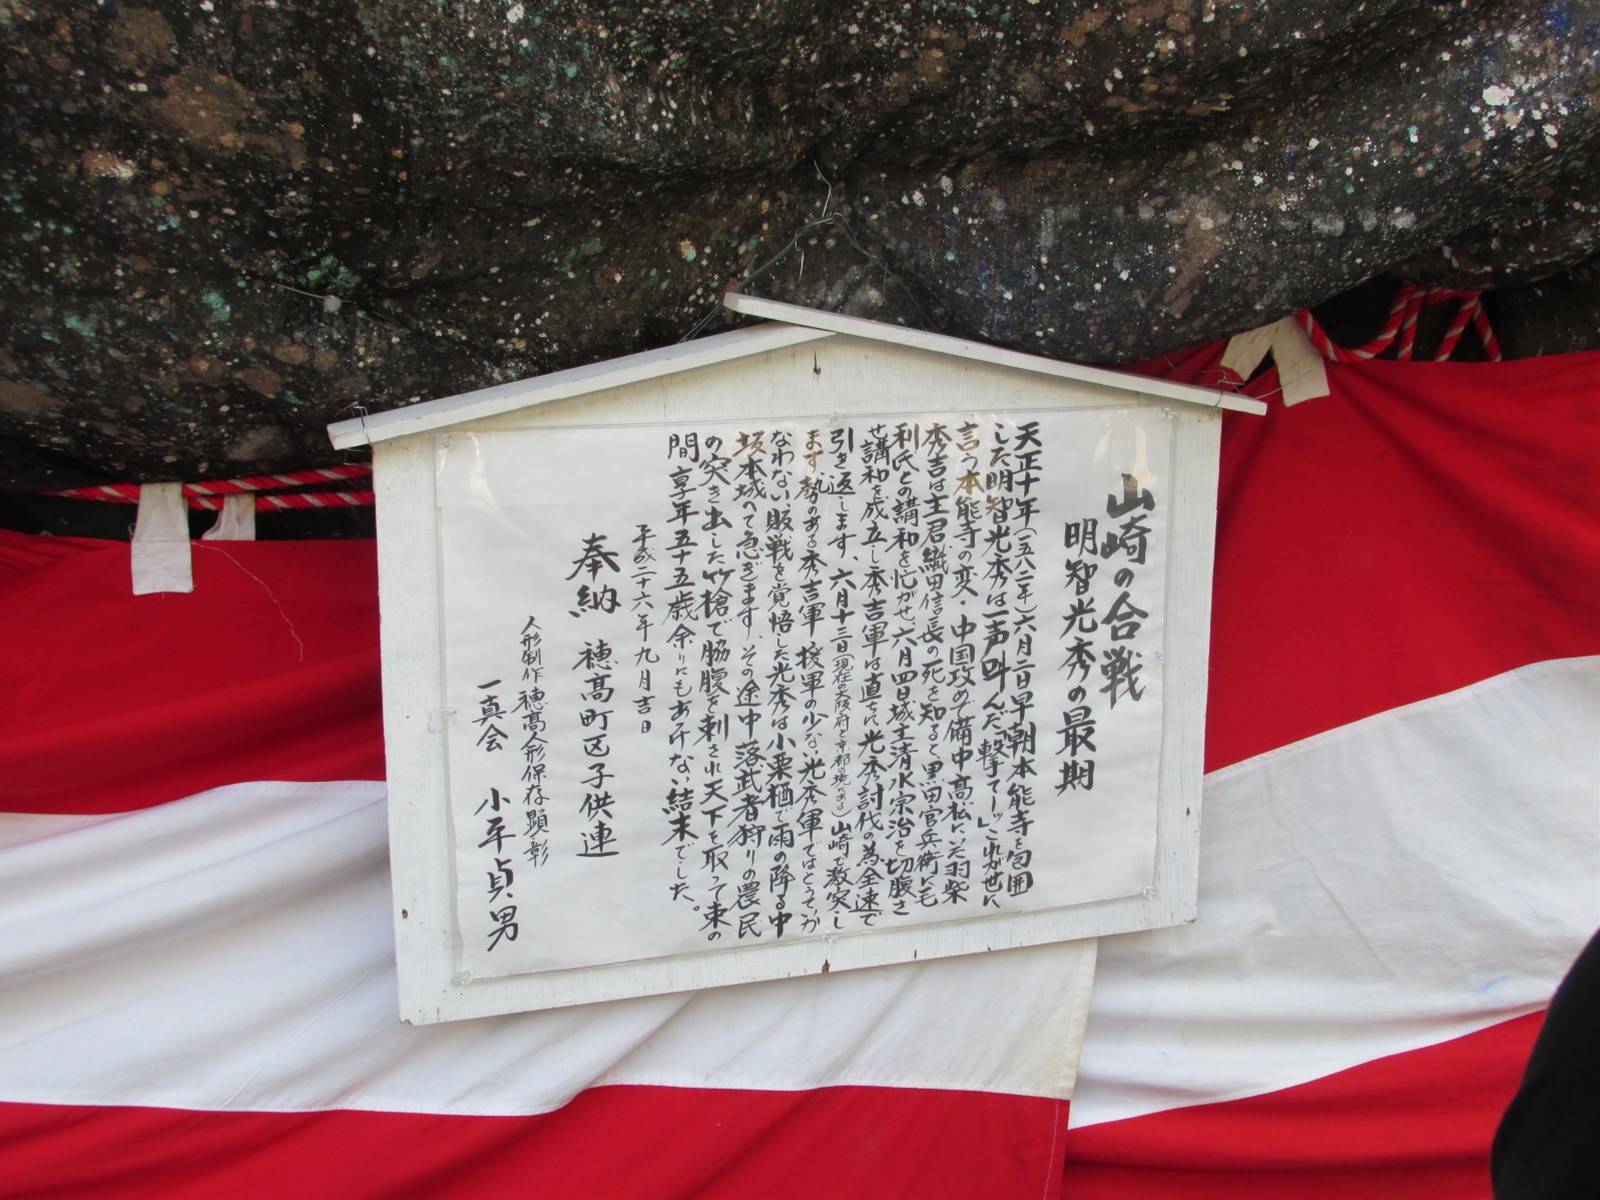 山崎の合戦
明智光秀の最期
天正十年(一五八二年)六月二日早朝本能寺を包囲
した明智光秀は一声叫んだ"撃てーッ"これが世に
言う本能寺の変・中国攻めで備中高松にいた羽柴
秀吉は主君織田信長の死を知ると黒田官兵衛に毛
利氏との講和を忙がせ、六月四日城主清水宗治を切腹さ
せ講和を成立し秀吉軍は直ちに光秀討伐の為全速で
引き返します、六月十三日(現在の大阪府と京都の境にある)山崎で激突し
ます、勢のある秀吉軍 援軍の少ない光秀軍ではとうていか
なわない、敗戦を覚悟した光秀は小栗栖で雨の降る中
坂本城へて急ぎます、その途中 落武者狩りの農民
の突き出した竹槍で脇腹を刺され天下を取って束の
間 享年五十五歳余りにもあっけない結末でした。
平成二十六年九月吉日
奉納 穂高町区子供連
人形制作 穂高人形保存顕彰
一真会 小平貞男